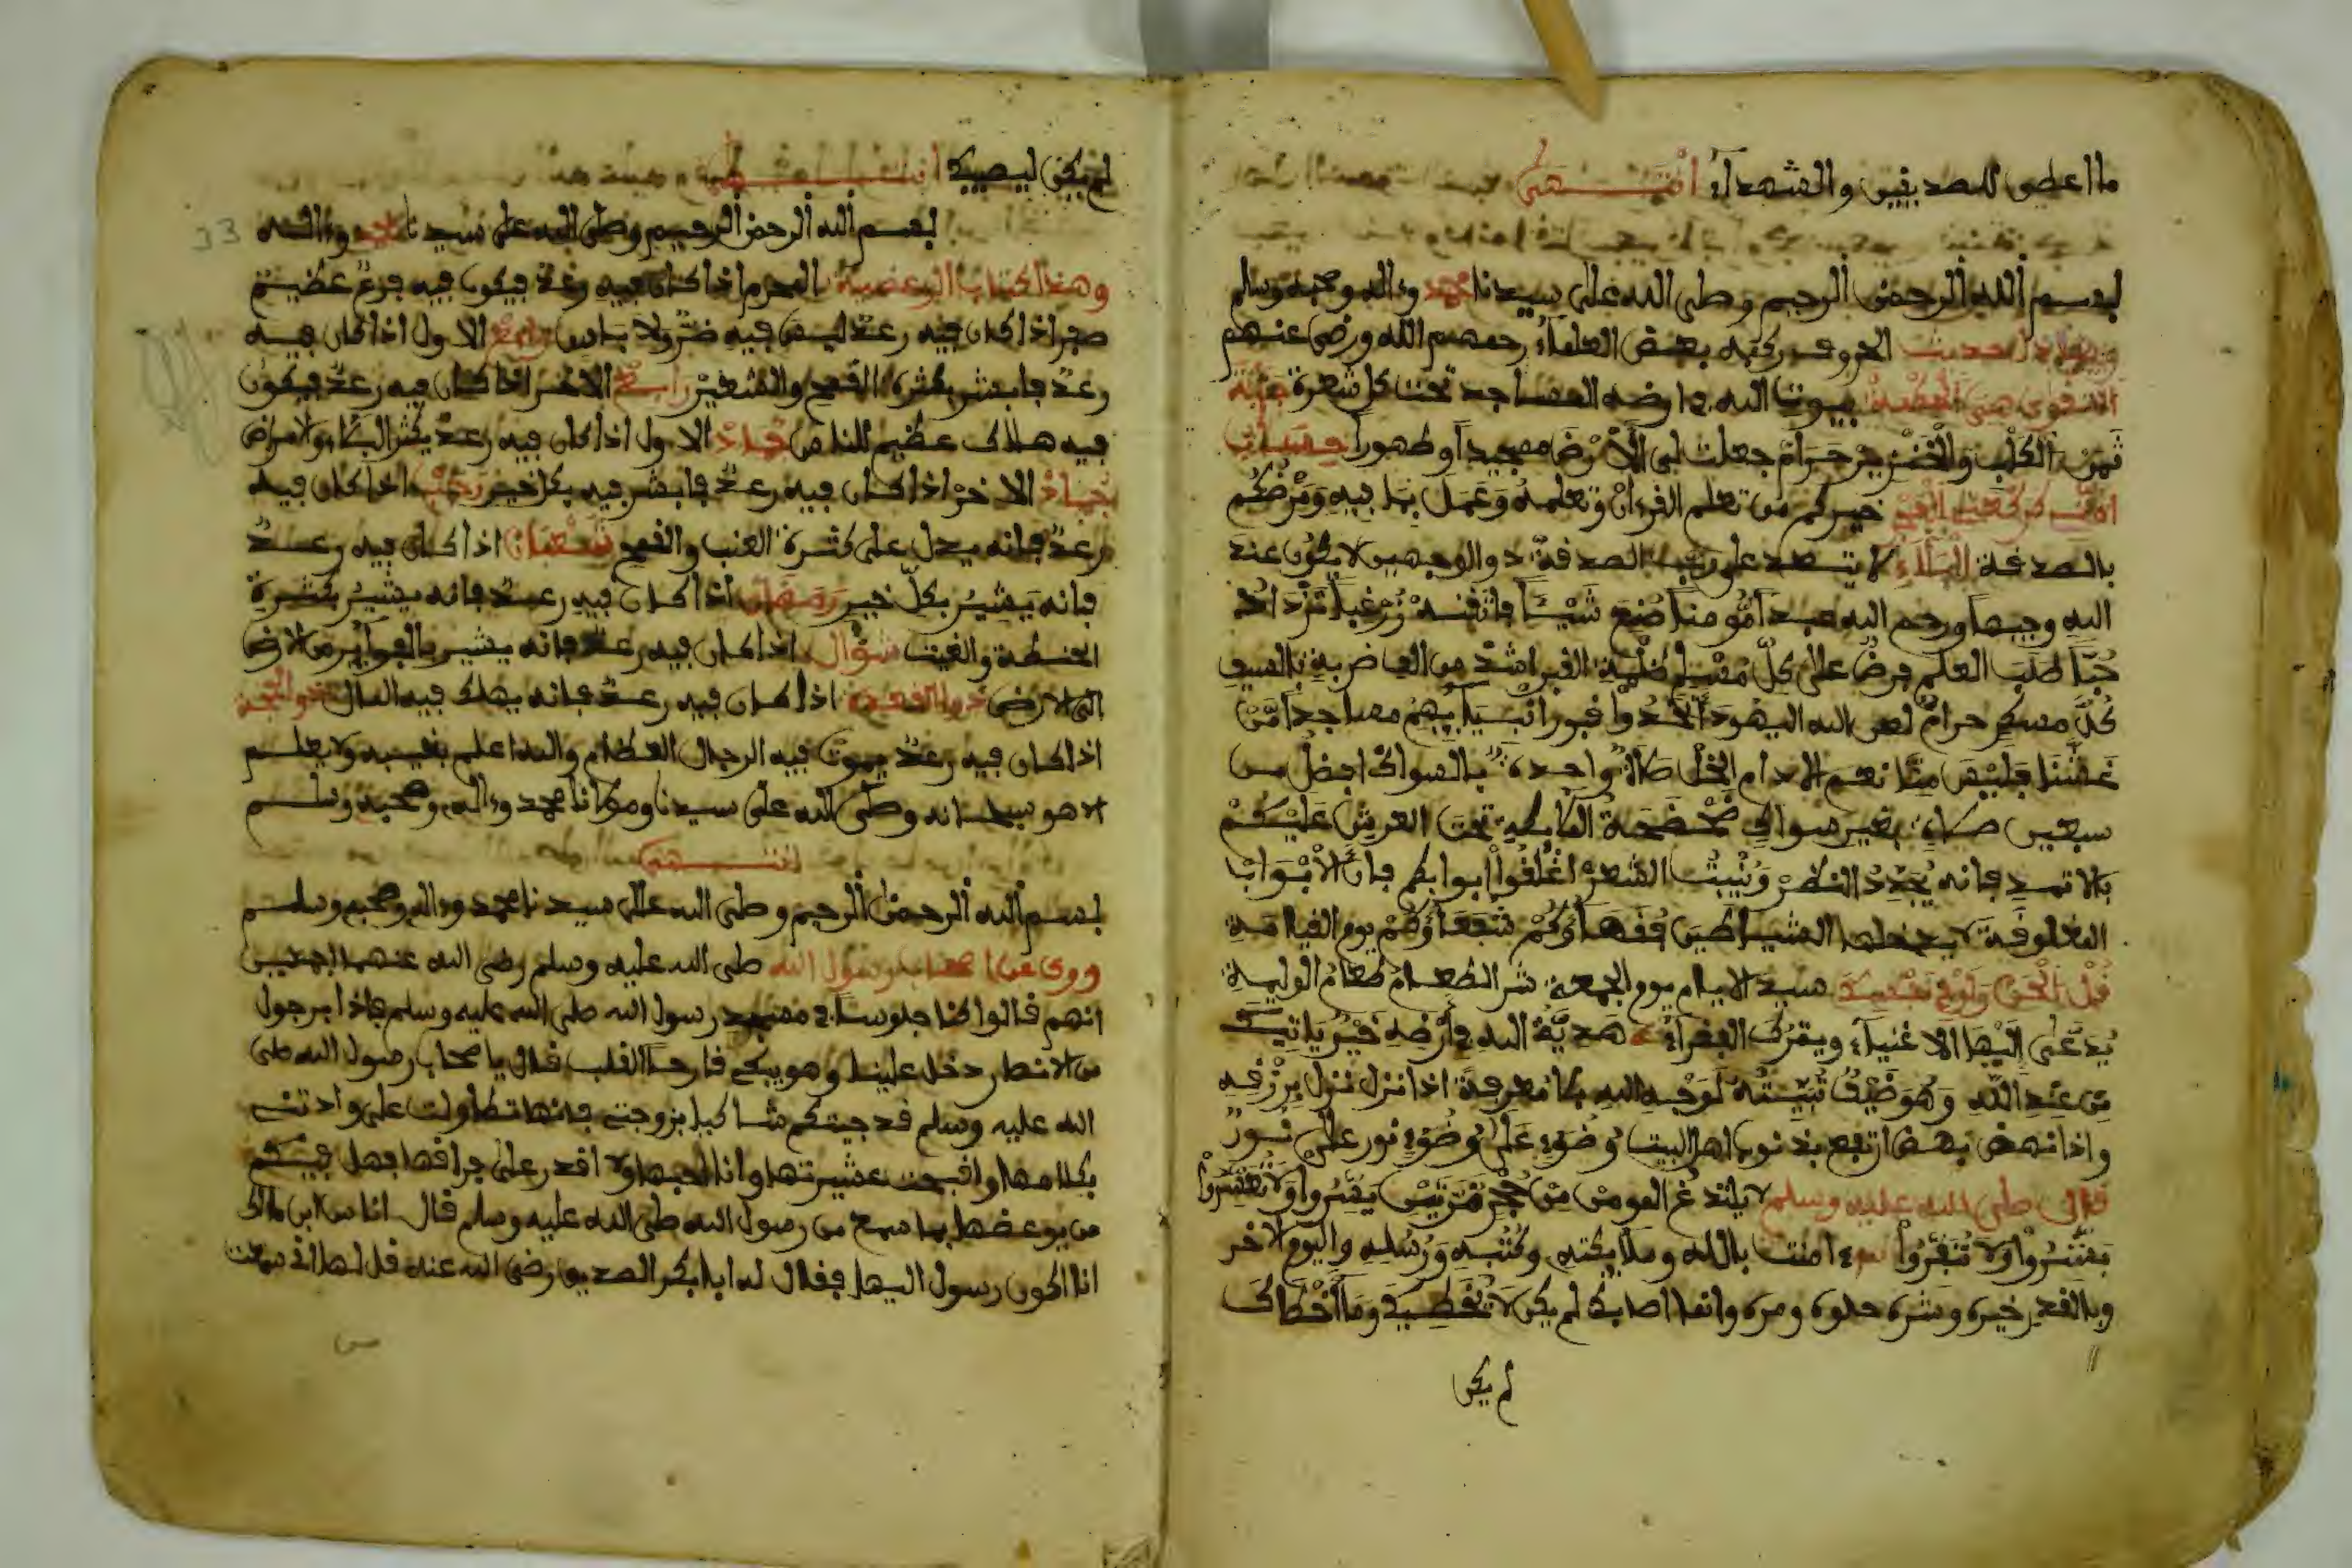 ما اعطى للصديقين والشهداء انتهى
بسم الله الرحمن الرحيم وصلى الله على سيدنا محمد وءاله وصحبه وسلم
حديث الحروف ركبه بعض العلماء رحمهم الله ورضى عنهم
التقوى هي بيوت الله في ارضه المساجد تحت كل شعرة جنابة
ثمن الكلب والخنزير حرام جعلت لى الارض مسجدا وطهورا
خيركم من تعلم القرءان وتعلمه وعمل بما فيه
بالصدقة البلاء لا الصدقة ذو الوجهين لا يكون عند
الله وجيها ورحم الله عبدا مومنا صنع شيئا فاتقنه زر غبا تزدد
حبا طلب العلم فرض على كل مسلم ظلمة القبر اشد من الف ضربة بالسيف
كل مسكر حرام لعن الله اليهود اتخذوا قبور انبيايهم مساجدا من
غشنا فليس منا نعم الادام الخل صلاة واحدة بالسواك افضل من
سبعين صلاة بغير سواك تحت العرش عليكم
بالاثمد فانه يجدد النظر وينبت الشعر اغلقوا ابوابكم فان الابواب
المغلوقة لا يدخلها الشياطين فقهاؤكم شفعاؤكم يوم القيامة
قل الحق ولو في نفسك سيد الايام يوم الجمعة شر الطعام طعام الوليمة
يدعى اليها الاغنياء ويترك الفقراء هدية الله في ارضه خير ياتيك
من عند الله وهو ضيف لوجه الله بلا معرفة اذا نزل نزل برزقه
واذا نهض نهض ارتفع بذنوب اهل البيت وضوء على وضوء نور على نور
قال صلى الله عليه وسلم لا يلدغ المومن من جحر مرتين يسروا ولا تعسروا
بشروا ولا تنفروا امنت بالله وملايكته وكتبه ورسله واليوم الاخر
وبالقدر خيره وشره حلوه ومره وانما اصابك لم يكن لا تخطيك وما اخطاك
لم يكن
لم يكن ليصيبك انتهى
33
بسم الله الرحمن الرحيم وصلى الله على سيدنا محمد وءاله
وهذا كتاب الرعدية المحرم اذا كان فيه رعد فيكون فيه فزع عظيم
صفر اذا كان فيه رعد ليس فيه ضر ولا باس ربيع الاول اذا كان فيه
رعد فابشر بكثرة القمح والشعير ربيع الاخر اذا كان فيه رعد فيكون
فيه هلاك عظيم للناس جماد الاول اذا كان فيه رعد يكثر البكاء والامراض
جماد الاخر اذا كان فيه رعد فابشر فيه بكل خير رجب اذا كان فيه
رعد فانه يدل على كثرة العنب والقمح شعبان اذا كان فيه رعد
فانه يبشر بكل خير رمضان اذا كان فيه رعد فانه يشير بكثرة
الحنطة والغيث شوال اذا كان فيه رعد فانه يشير من الارض
الى الارض ذو القعدة اذا كان فيه رعد فانه يهلك فيه المال ذو الحجة
اذا كان فيه رعد يموت فيه الرجال العظام والله اعلم بغيبه ولا يعلم
الا هو سبحانه وصلى الله على سيدنا ومولانا محمد وءاله وصحبه وسلم
انتهى
بسم الله الرحمن الرحيم وصلى الله على سيدنا محمد وءاله وصحبه وسلم
وروى عن اصحاب رسول الله صلى الله عليه وسلم رضى الله عنهم اجمعين
انهم قالوا كنا جلوسا في مسجد رسول الله صلى الله عليه وسلم فاذا برجول
من الانصار دخل علينا وهو يبكى القلب قال يا صحاب رسول الله صلى
الله عليه وسلم قد جيتكم شاكيا بزوجتى فانها تطاولت على واذتنى
بكلامها وافبحت عشيرتها وانا احبها ولا اقدر على فراقها فهل فيكم
من يوعضها بما سمع من رسول الله صلى الله عليه وسلم قال انا س ابن مالك
انا اكون رسول اليها فقال له ابا بكر الصديق رضى الله عنه قل لها انى سمعت